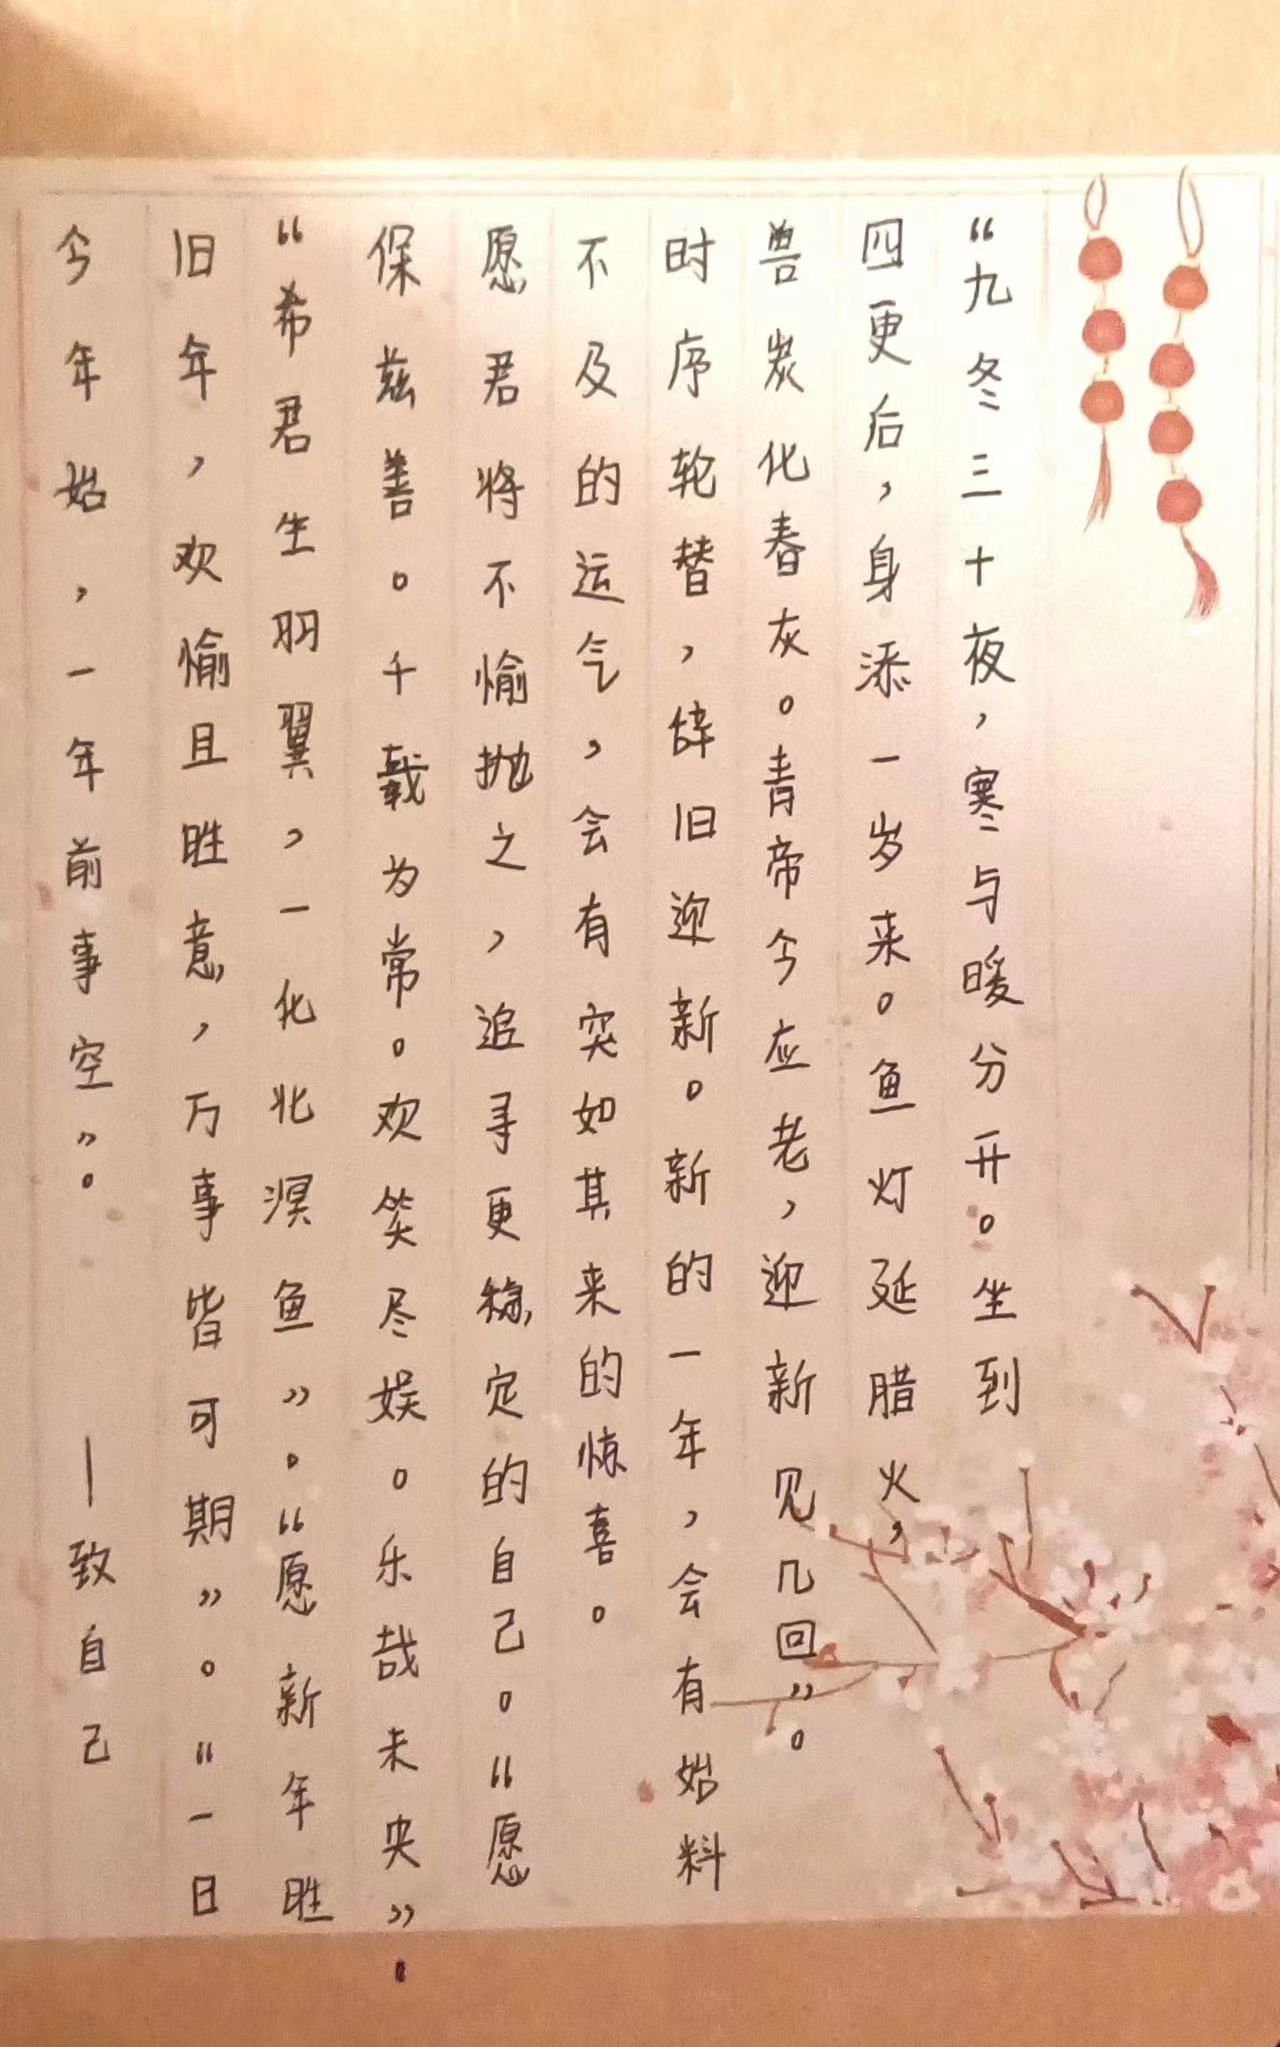 “九冬三十夜，寒与暖分开。坐到
四更后，身添一岁来。鱼灯延腊火，
兽炭化春灰。青帝今应老，迎新见几回”。
时序轮替，辞旧迎新。新的一年，会有始料
不及的运气，会有突如其来的惊喜。
愿君将不愉抛之，追寻更稳定的自己。“愿
保兹善。千载为常。欢笑尽娱。乐哉未央”。
“希君生羽翼，一化北溟鱼”。“愿新年胜
旧年，欢愉且胜意，万事皆可期”。“一日
今年始，一年前事空”。 —致自己